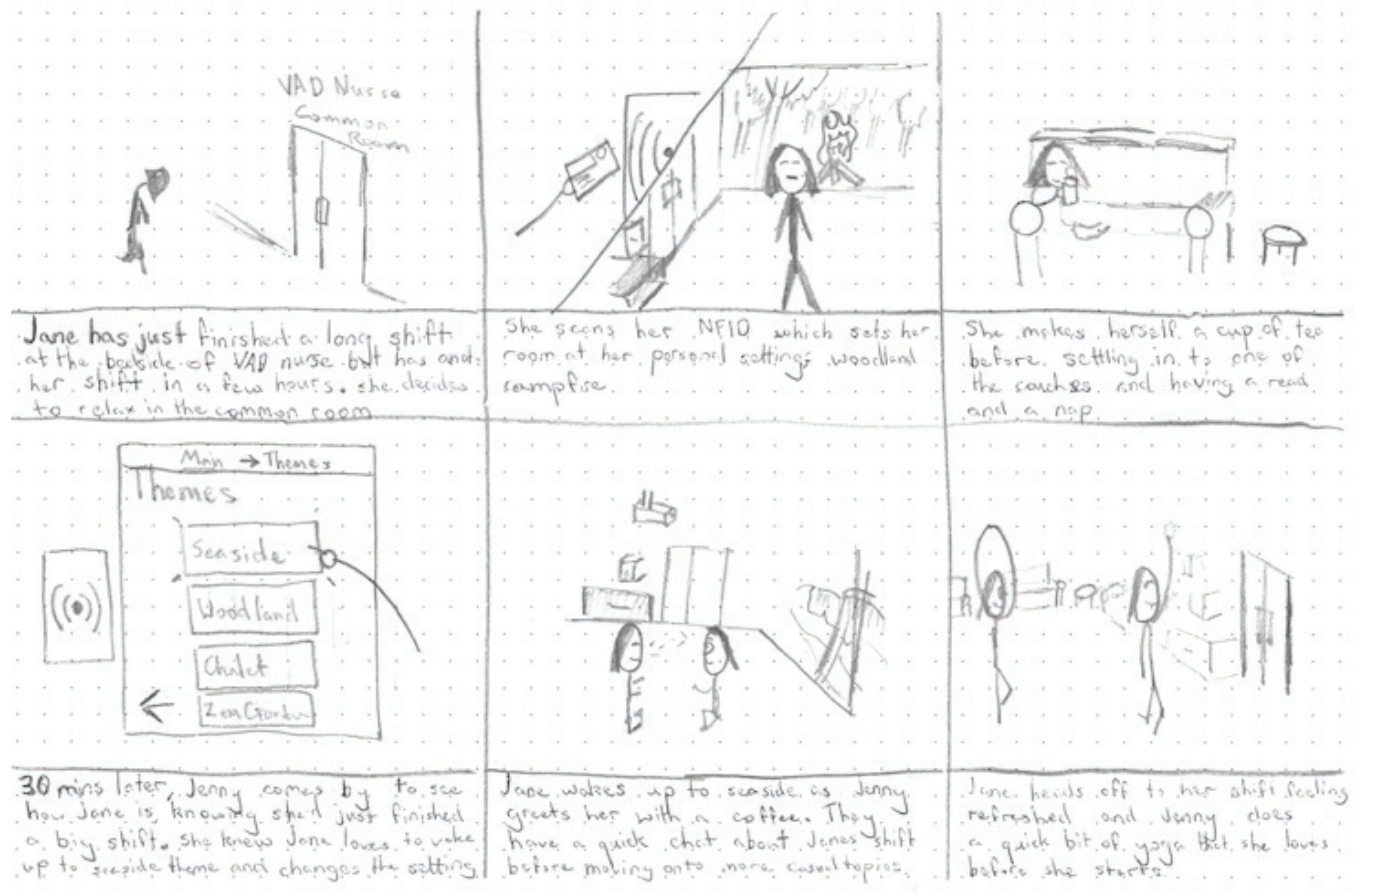 VAD Nurse
Common
Room
Jane has just finished a long shift
at the bedside of VAD nurse but has anot-
her shift in a few hours. she decides
to relax in the common room
She scans her NFID which sets her
room at her personal setting; woodland
campfire.
She makes herself a cup of tea
before settling in to one of
the couches and having a read
and a nap
Main → Themes
Themes
Seaside
Woodland
Chalet
Zen Garden
30 mins later, Jenny comes by to see
how Jane is, knowing she'd just finished
a big shift. She knew Jane loves to wake
up to seaside theme and changes the setting
Jane wakes up to seaside as Jenny
greets her with a coffee. They
have a quick chat about Janes shift
before moving onto more casual topics.
Jane heads off to her shift feeling
refreshed and Jenny does
a quick bit of yoga that she loves
before she starts.